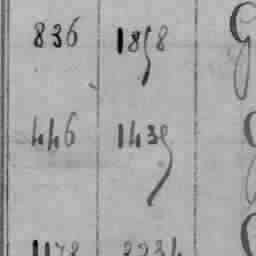 836 1858 G
446 1439
1178 2234